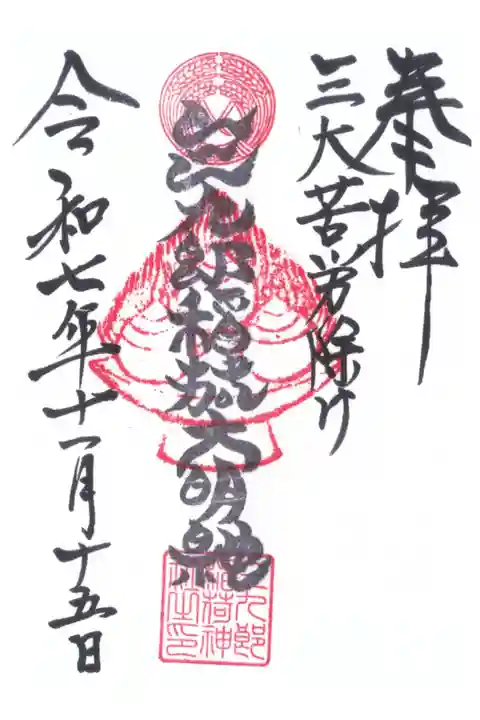 奉拝
三大苦労除け
九郎稲荷大明神
令和七年十一月十五日
九郎
稲荷神
社之印